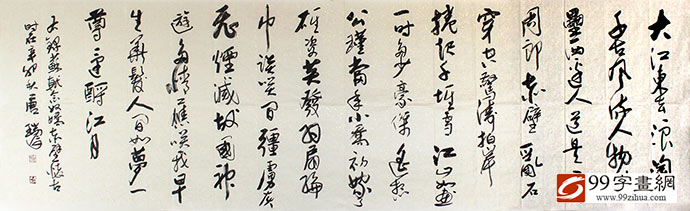 大江東去浪淘
千古風流人物
壘西邊人道是
周郎赤壁亂石
穿空驚濤拍岸
捲起千堆雪江山如畫
一時多少豪傑遙想
公瑾當年小喬初嫁了
雄姿英發羽扇綸
巾談笑間彊虜灰
飛煙滅故國神
遊多情應笑我早
生華髮人間如夢一
尊還酹江月
蘇軾念奴嬌赤壁懷古
時在辛卯秋唐
99字畫網
www.99zihua.com